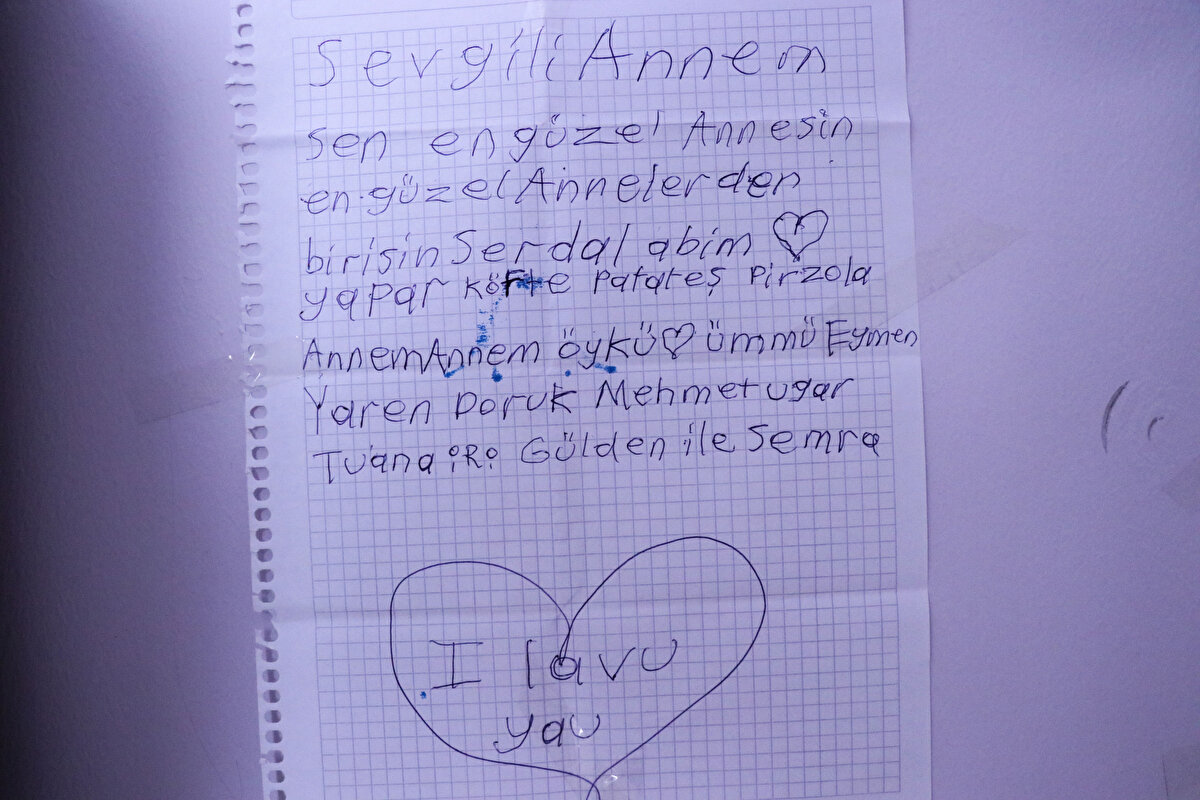 Sevgili Annem
sen en güzel Annesin
en güzel Annelerden
birisin Serdal abim ♡
yapar köfte Patateş Pirzola
Annem Annem öykü ♡ ümmü Eymen
Yaren Doruk Mehmet ugar
Tuana Gülden ile Semra
I lavu
yau